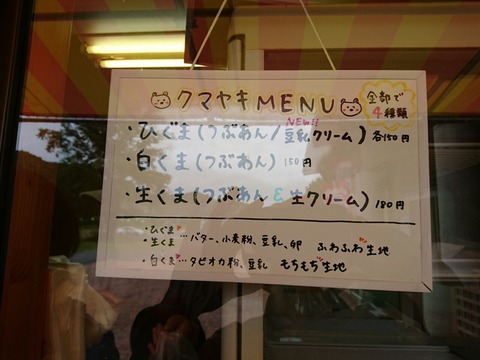 クマヤキMENU
全部で
4種類
NEW!!
・ひぐま(つぶあん/豆乳クリーム) 各150円
・白くま(つぶあん) 150円
・生くま(つぶあん & 生クリーム) 180円
・ひぐま
・生くま …バター、小麦粉、豆乳、卵 ふわふわ生地
・白くま…タピオカ粉、豆乳 もちもち生地